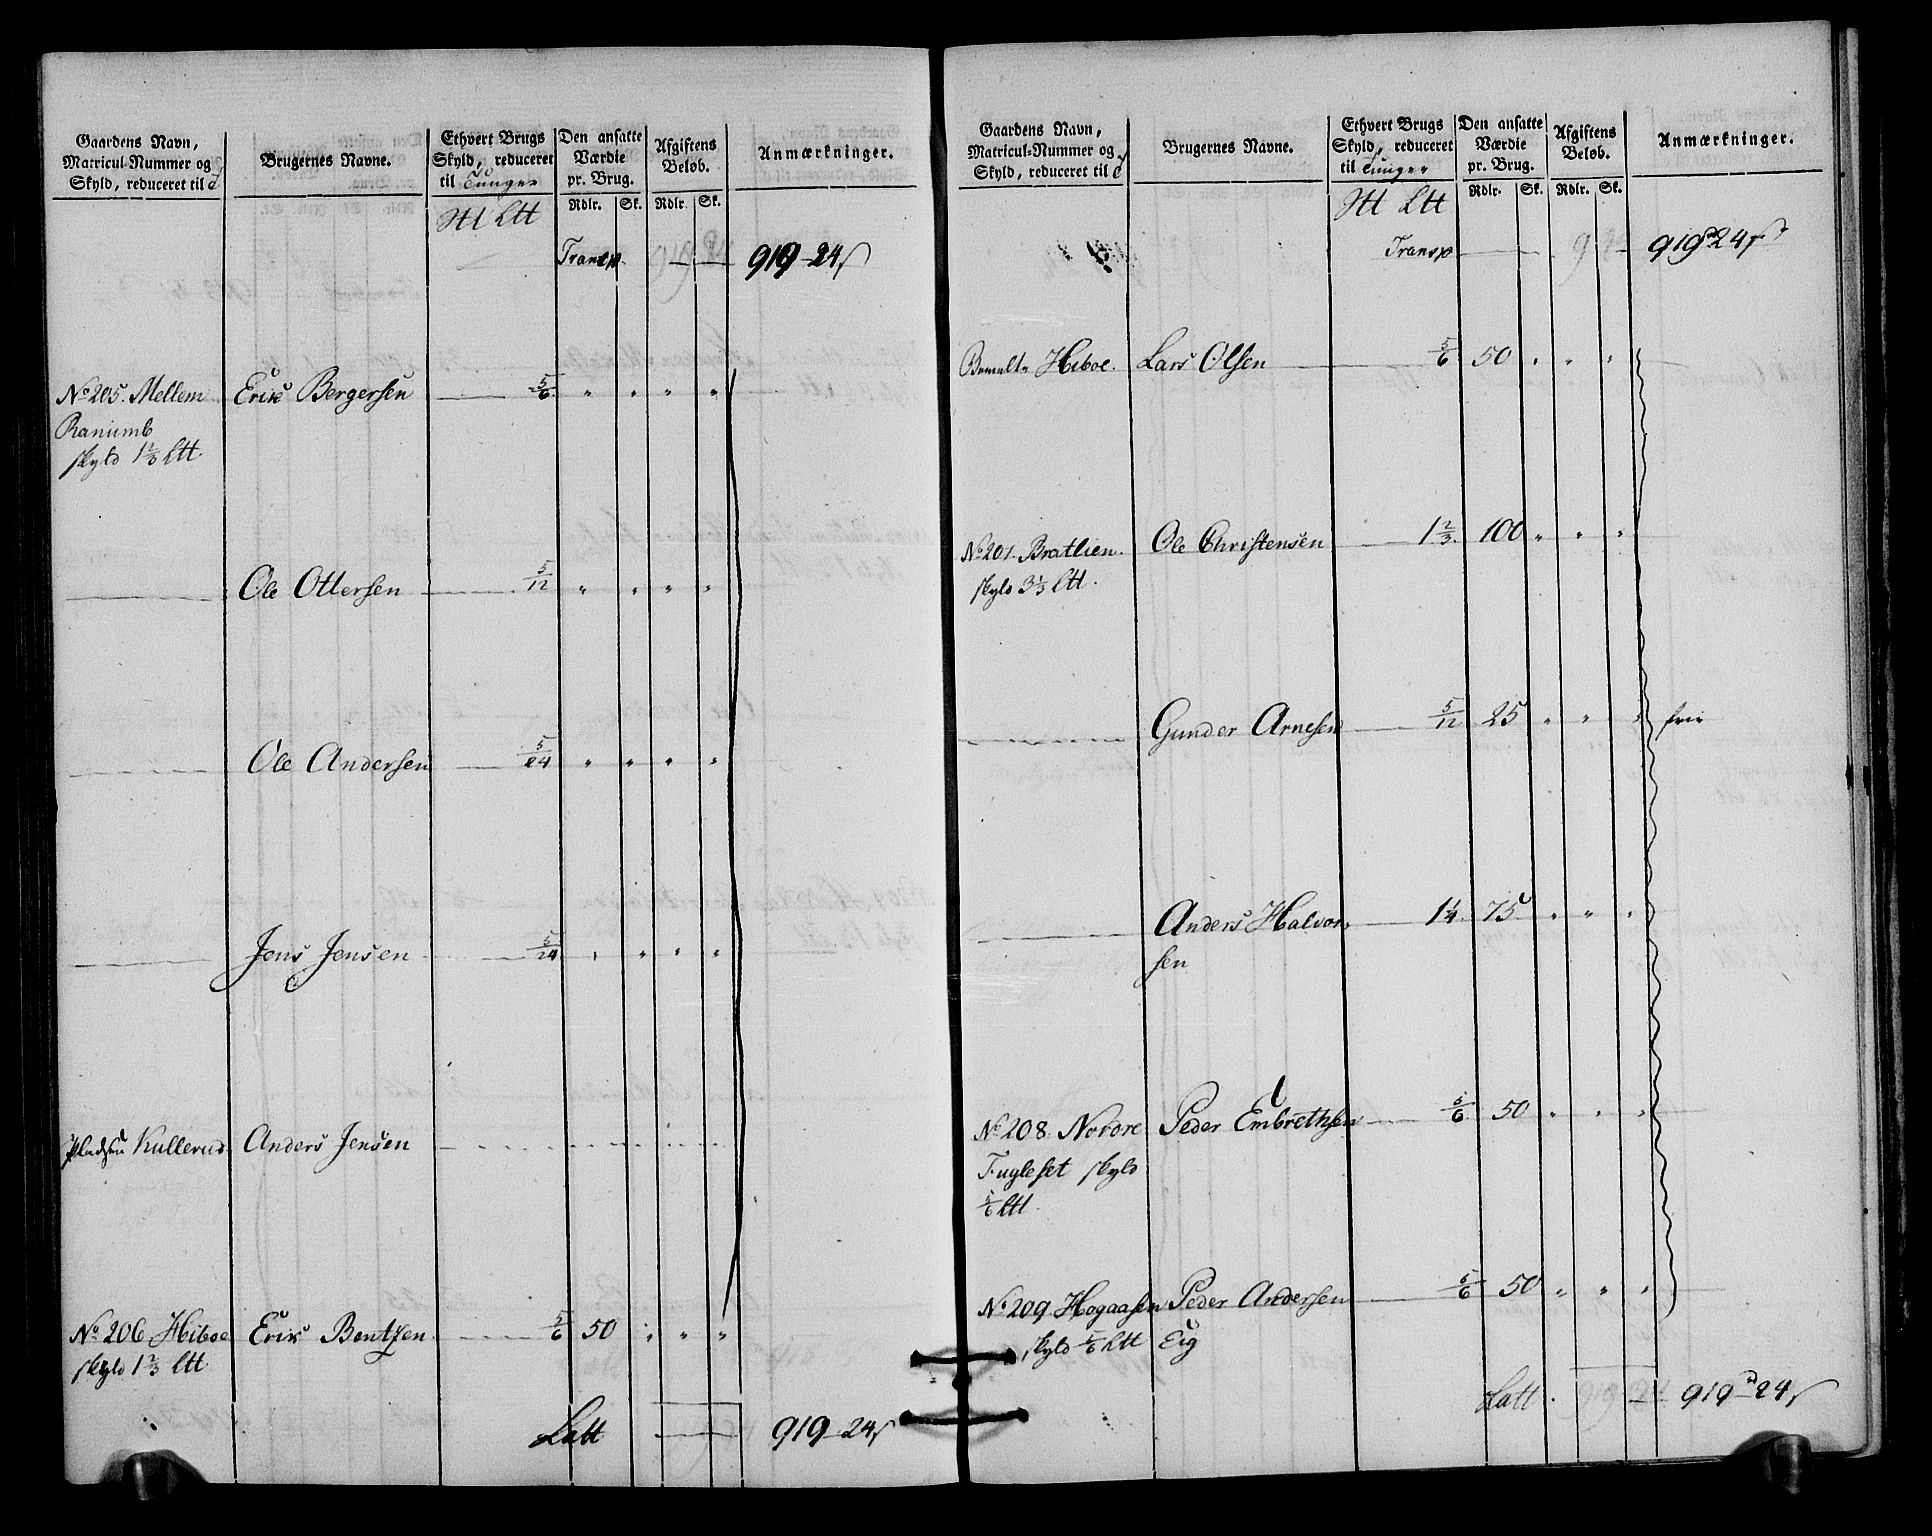 Gaardens Navn, Matricul-Nummer og Skyld, reduceret til
Brugernes Navne.
Ethvert Brugs Skyld, reduceret til Tunger
Den ansatte Værdie pr. Brug.
Afgiftens Beløb.
Anmærkninger.
Rdlr. Sk. Rdlr. Sk.
Ltt
Transp. 919 - 24
No 205. Mellem Erik Bergersen 5/6 " " " "
Ranumb
skyld 1 2/3 Ltt.
Ole Ottersen 5/12 " " " "
Ole Andersen 5/24 " " " "
Jens Jensen 5/24 " " " "
Pladsen Kullerud Anders Jensen
No 206 Hiboe Erik Bentzen 5/6 50 " " "
skyld 1 2/3 Ltt
Latt 919 - 24
Gaardens Navn, Matricul-Nummer og Skyld, reduceret til
Brugernes Navne.
Ethvert Brugs Skyld, reduceret til Tunger
Den ansatte Værdie pr. Brug.
Afgiftens Beløb.
Anmærkninger.
Rdlr. Sk. Rdlr. Sk.
Ltt
Transp 919 24
Hiboe. Lars Olsen 5/6 50 " " "
No 207. Bratlien. Ole Christensen 1 2/3. 100 " " "
skyld 3 1/3 Ltt.
Gunder Arnesen 5/12 25 " " " frie
Anders Halvor-
sen 1 1/4. 75 " " "
No 208. Nordre Peder Embrethsen 5/6 50 " " "
Fugleset skyld
5/6 Ltt.
No 209 Hogaasen Peder Andersen 5/6 50 " " "
skyld 5/6 Ltt Eig
Latt. 919 - 24